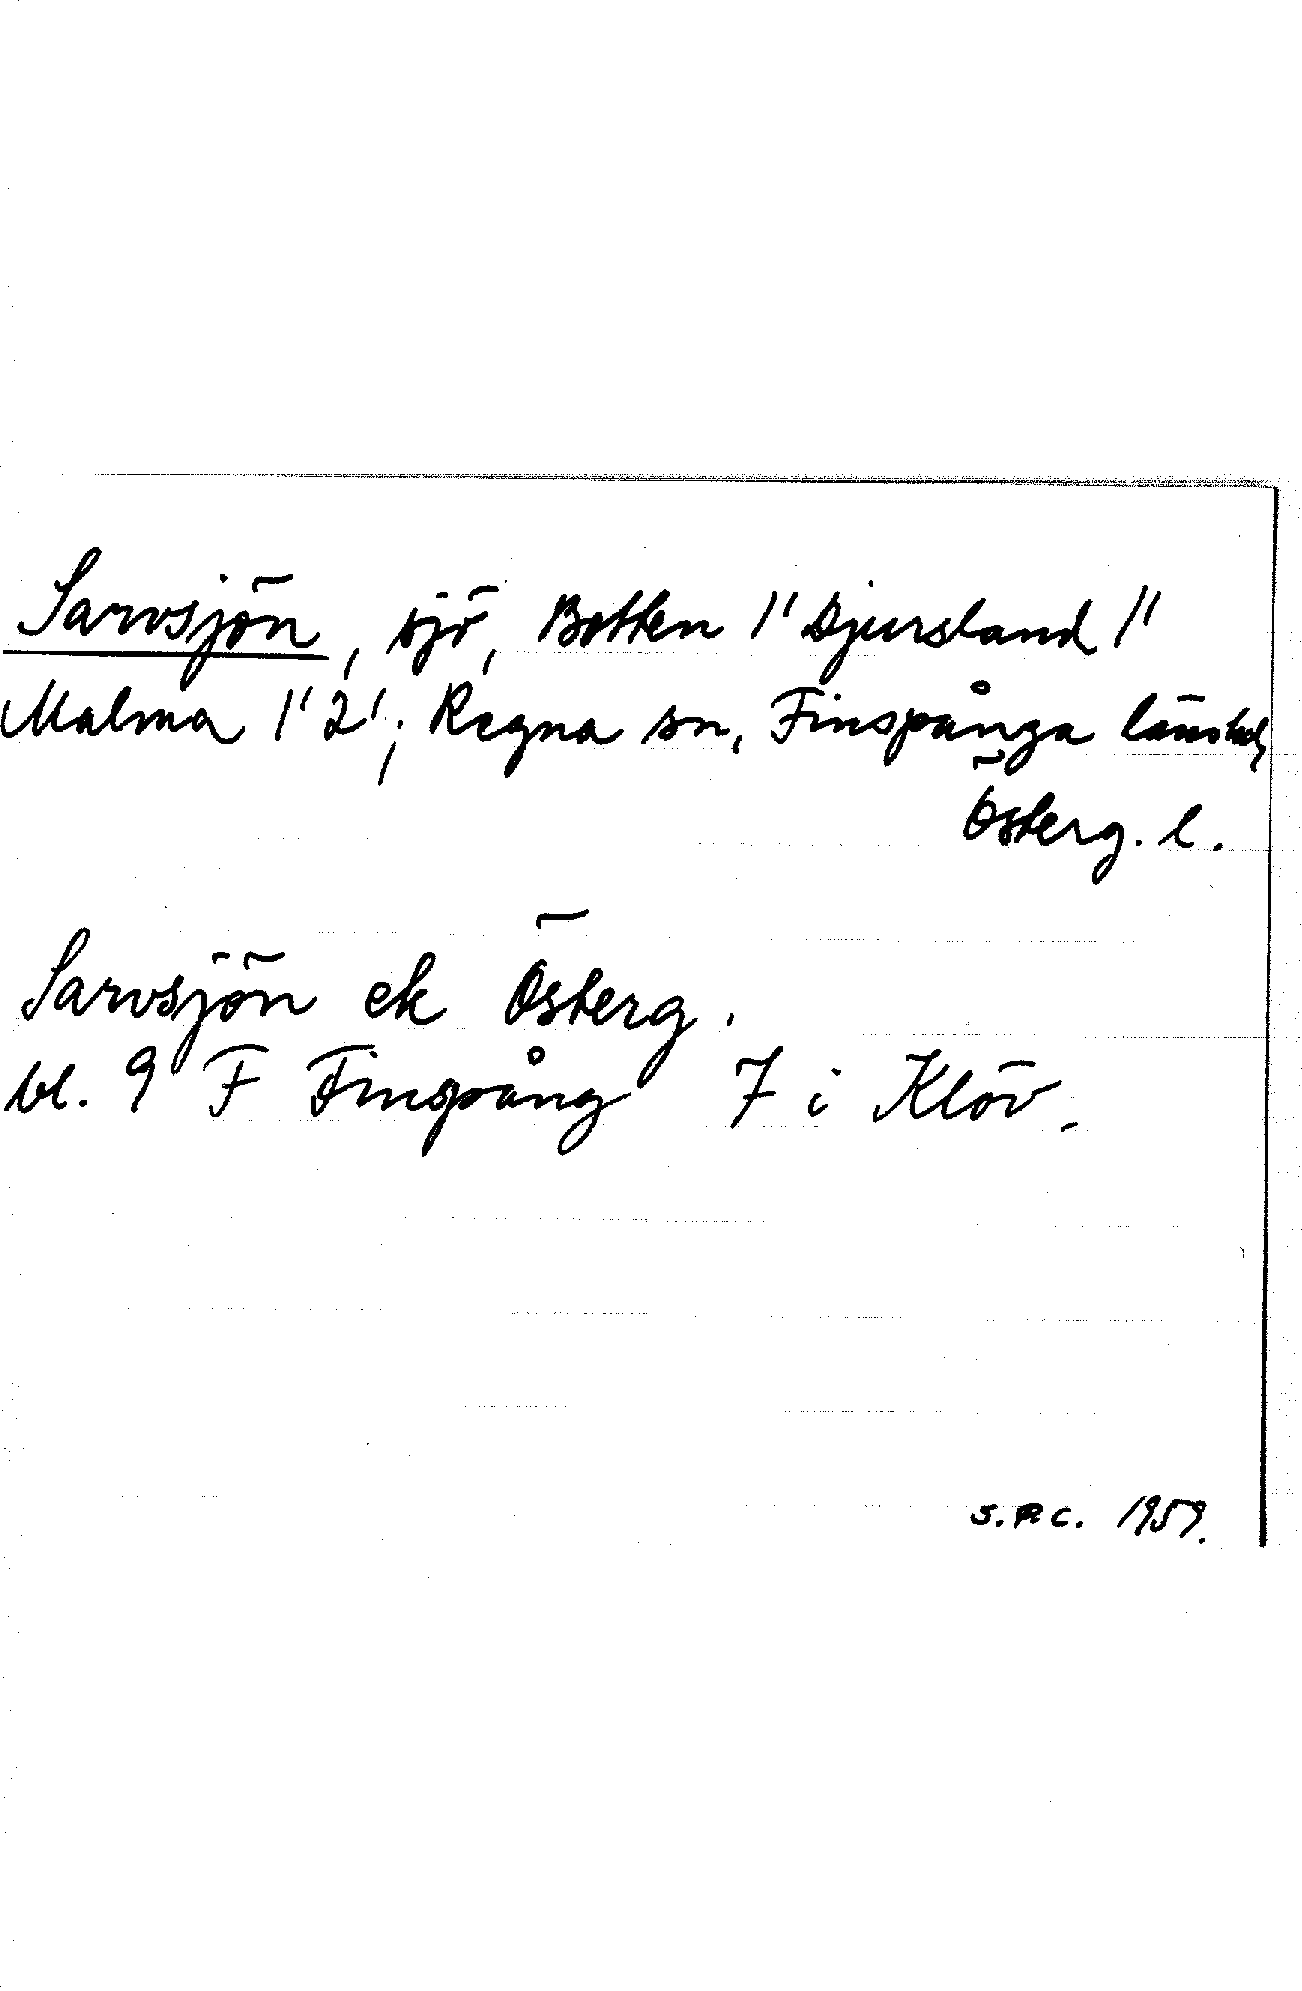 Sarvsjön, sjö, Botten 1" Djursland 1"
Malma 1' 2'; Regna sn, Finspånga länshd,
Österg. l.
Sarvsjön ek Österg.
bl. 9 F Finspång 7 i Klöv.
S.R C. 1959.